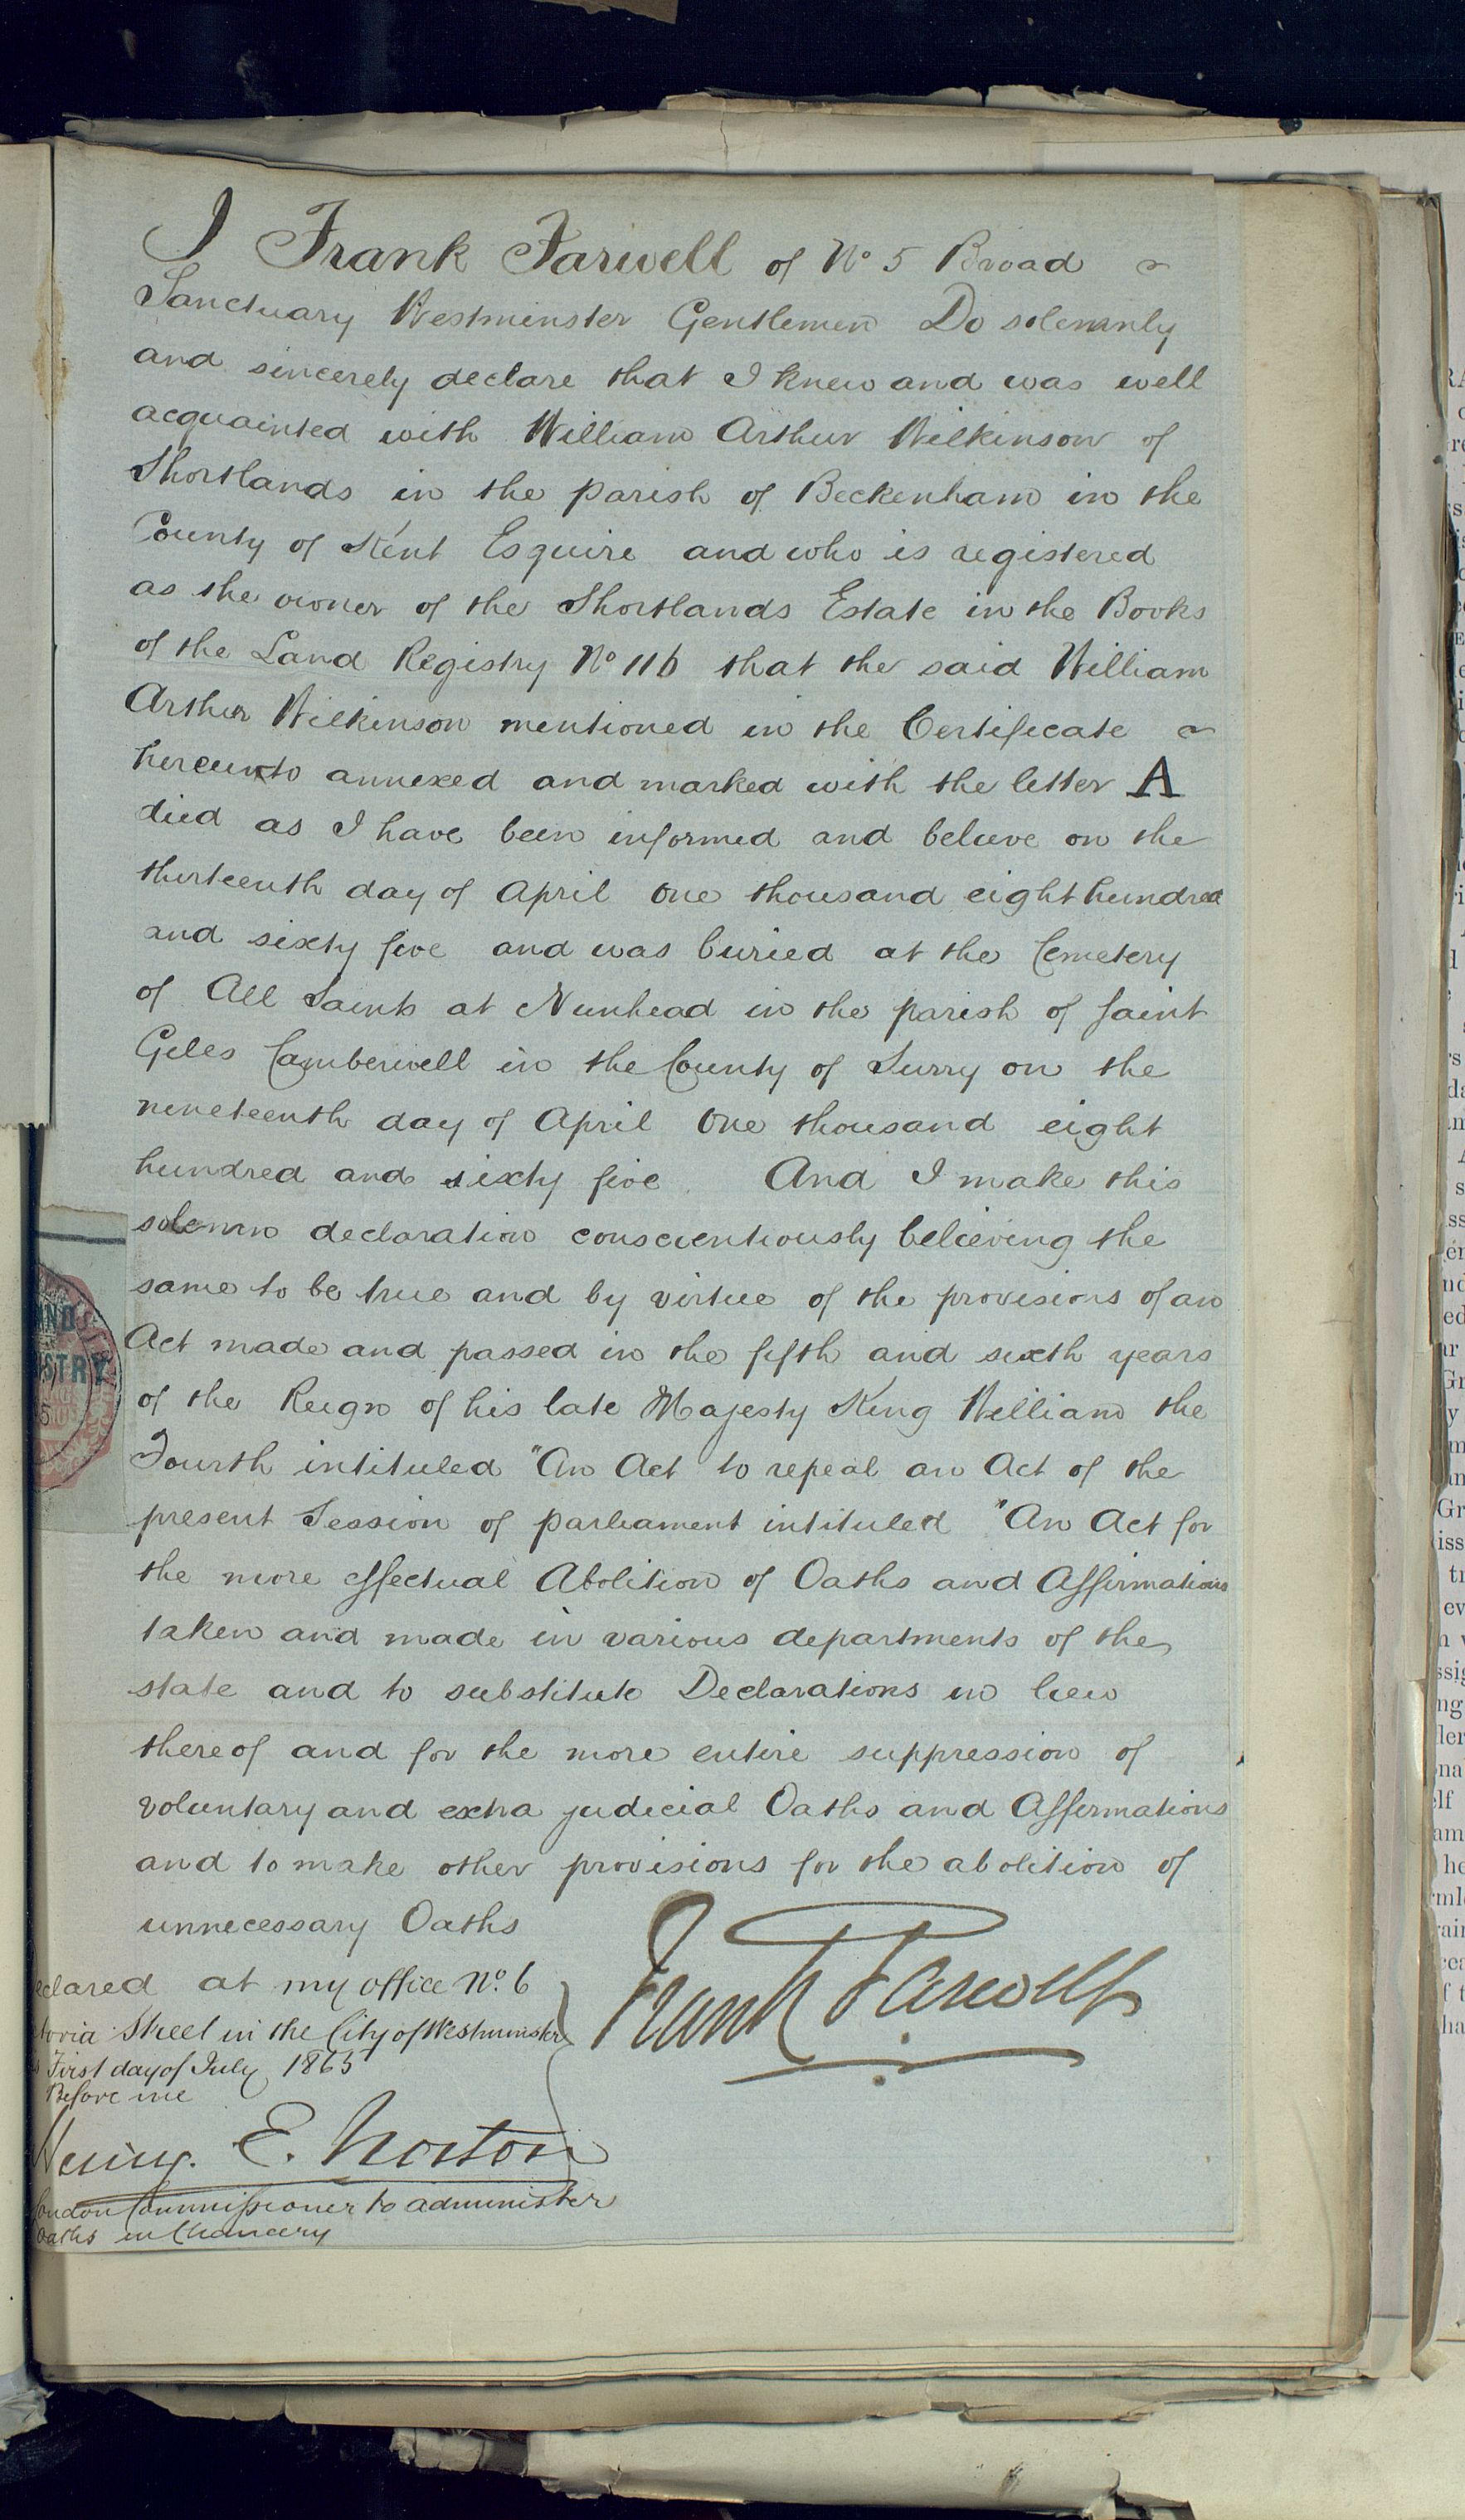 I Frank Farwell of No 5 Broad ~
Sanctuary Westminster Gentlemen Do solemnly
and sincerely declare that I knew and was well
acquainted with William Arthur Wilkinson of
Shortlands in the parish of Beckenham in the
County of Kent Esquire and who is registered
as the owner of the Shortlands Estate in the Books
of the Land Registry No 116 that the said William
Arthur Wilkinson mentioned in the Certificate ~
hereunto annexed and marked with the letter A
died as I have been informed and believe on the
thirteenth day of April One thousand eight hundred
and sixty five and was buried at the Cemetery
of All Saints at Nunhead in the parish of Saint
Giles Camberwell in the County of Surry on the
nineteenth day of April One thousand eight
hundred and sixty five. And I make this
solemn declaration conscientiously believing the
same to be true and by virtue of the provisions of an
Act made and passed in the fifth and sixth years
of the Reign of his late Majesty King William the
Fourth intituled "An Act to repeal an Act of the
present Session of parliament intituled "An Act for
the more effectual Abolition of Oaths and Affirmations
taken and made in various departments of the
state and to substitute Declarations in lieu
thereof and for the more entire suppression of
voluntary and extra judicial Oaths and Affirmations
and to make other provisions for the abolition of
unnecessary Oaths
eclared at my office No. 6
toria Street in the City of Westminster
First day of July 1865
Before me
Frank Farwell
Henry. E. Norton
London Commissioner to administer
Oaths in Chancery